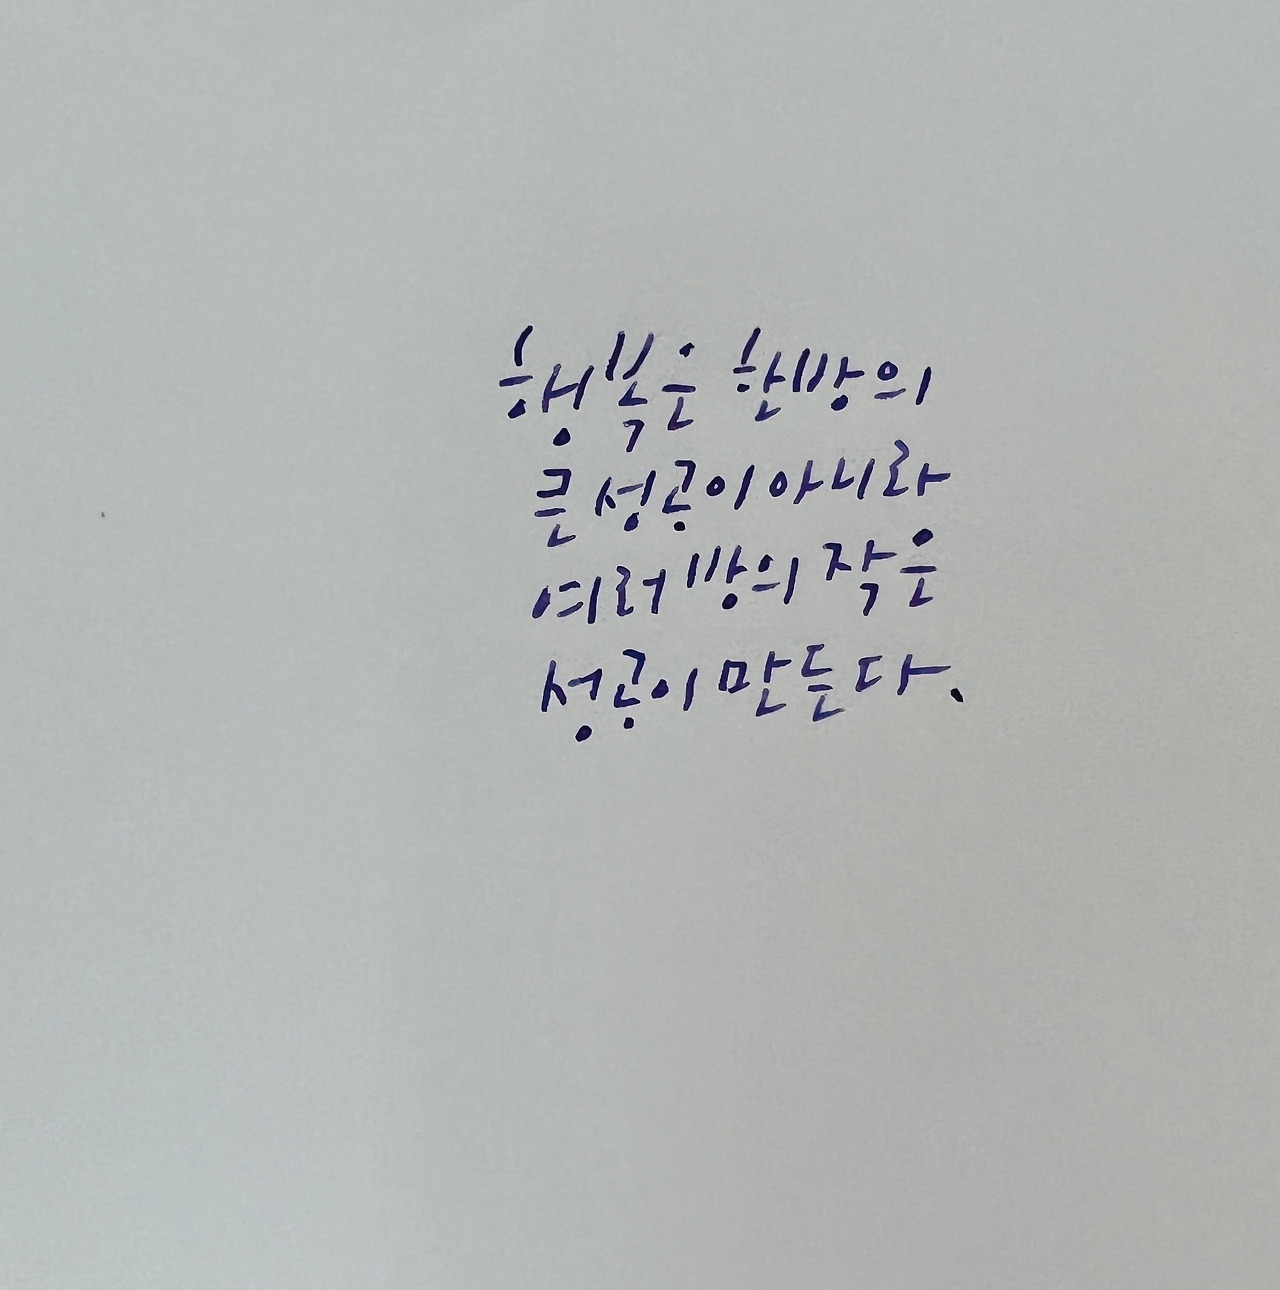 행복은 한방의
큰 성공이 아니라
여러 방의 작은
성공이 만든다.